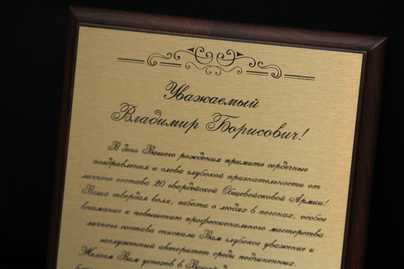 Уважаемый
Владимир Борисович!
В день Вашего рождения примите сердечные
поздравления и слова глубокой признательности от
личного состава 20 гвардейской Общевойсковой Армии!
Ваша твердая воля, забота о людях в погонах, особое
внимание к повышению профессионального мастерства
личного состава снискали Вам глубокое уважение и
заслуженный авторитет среди подчиненных.
Желаем Вам успехов в